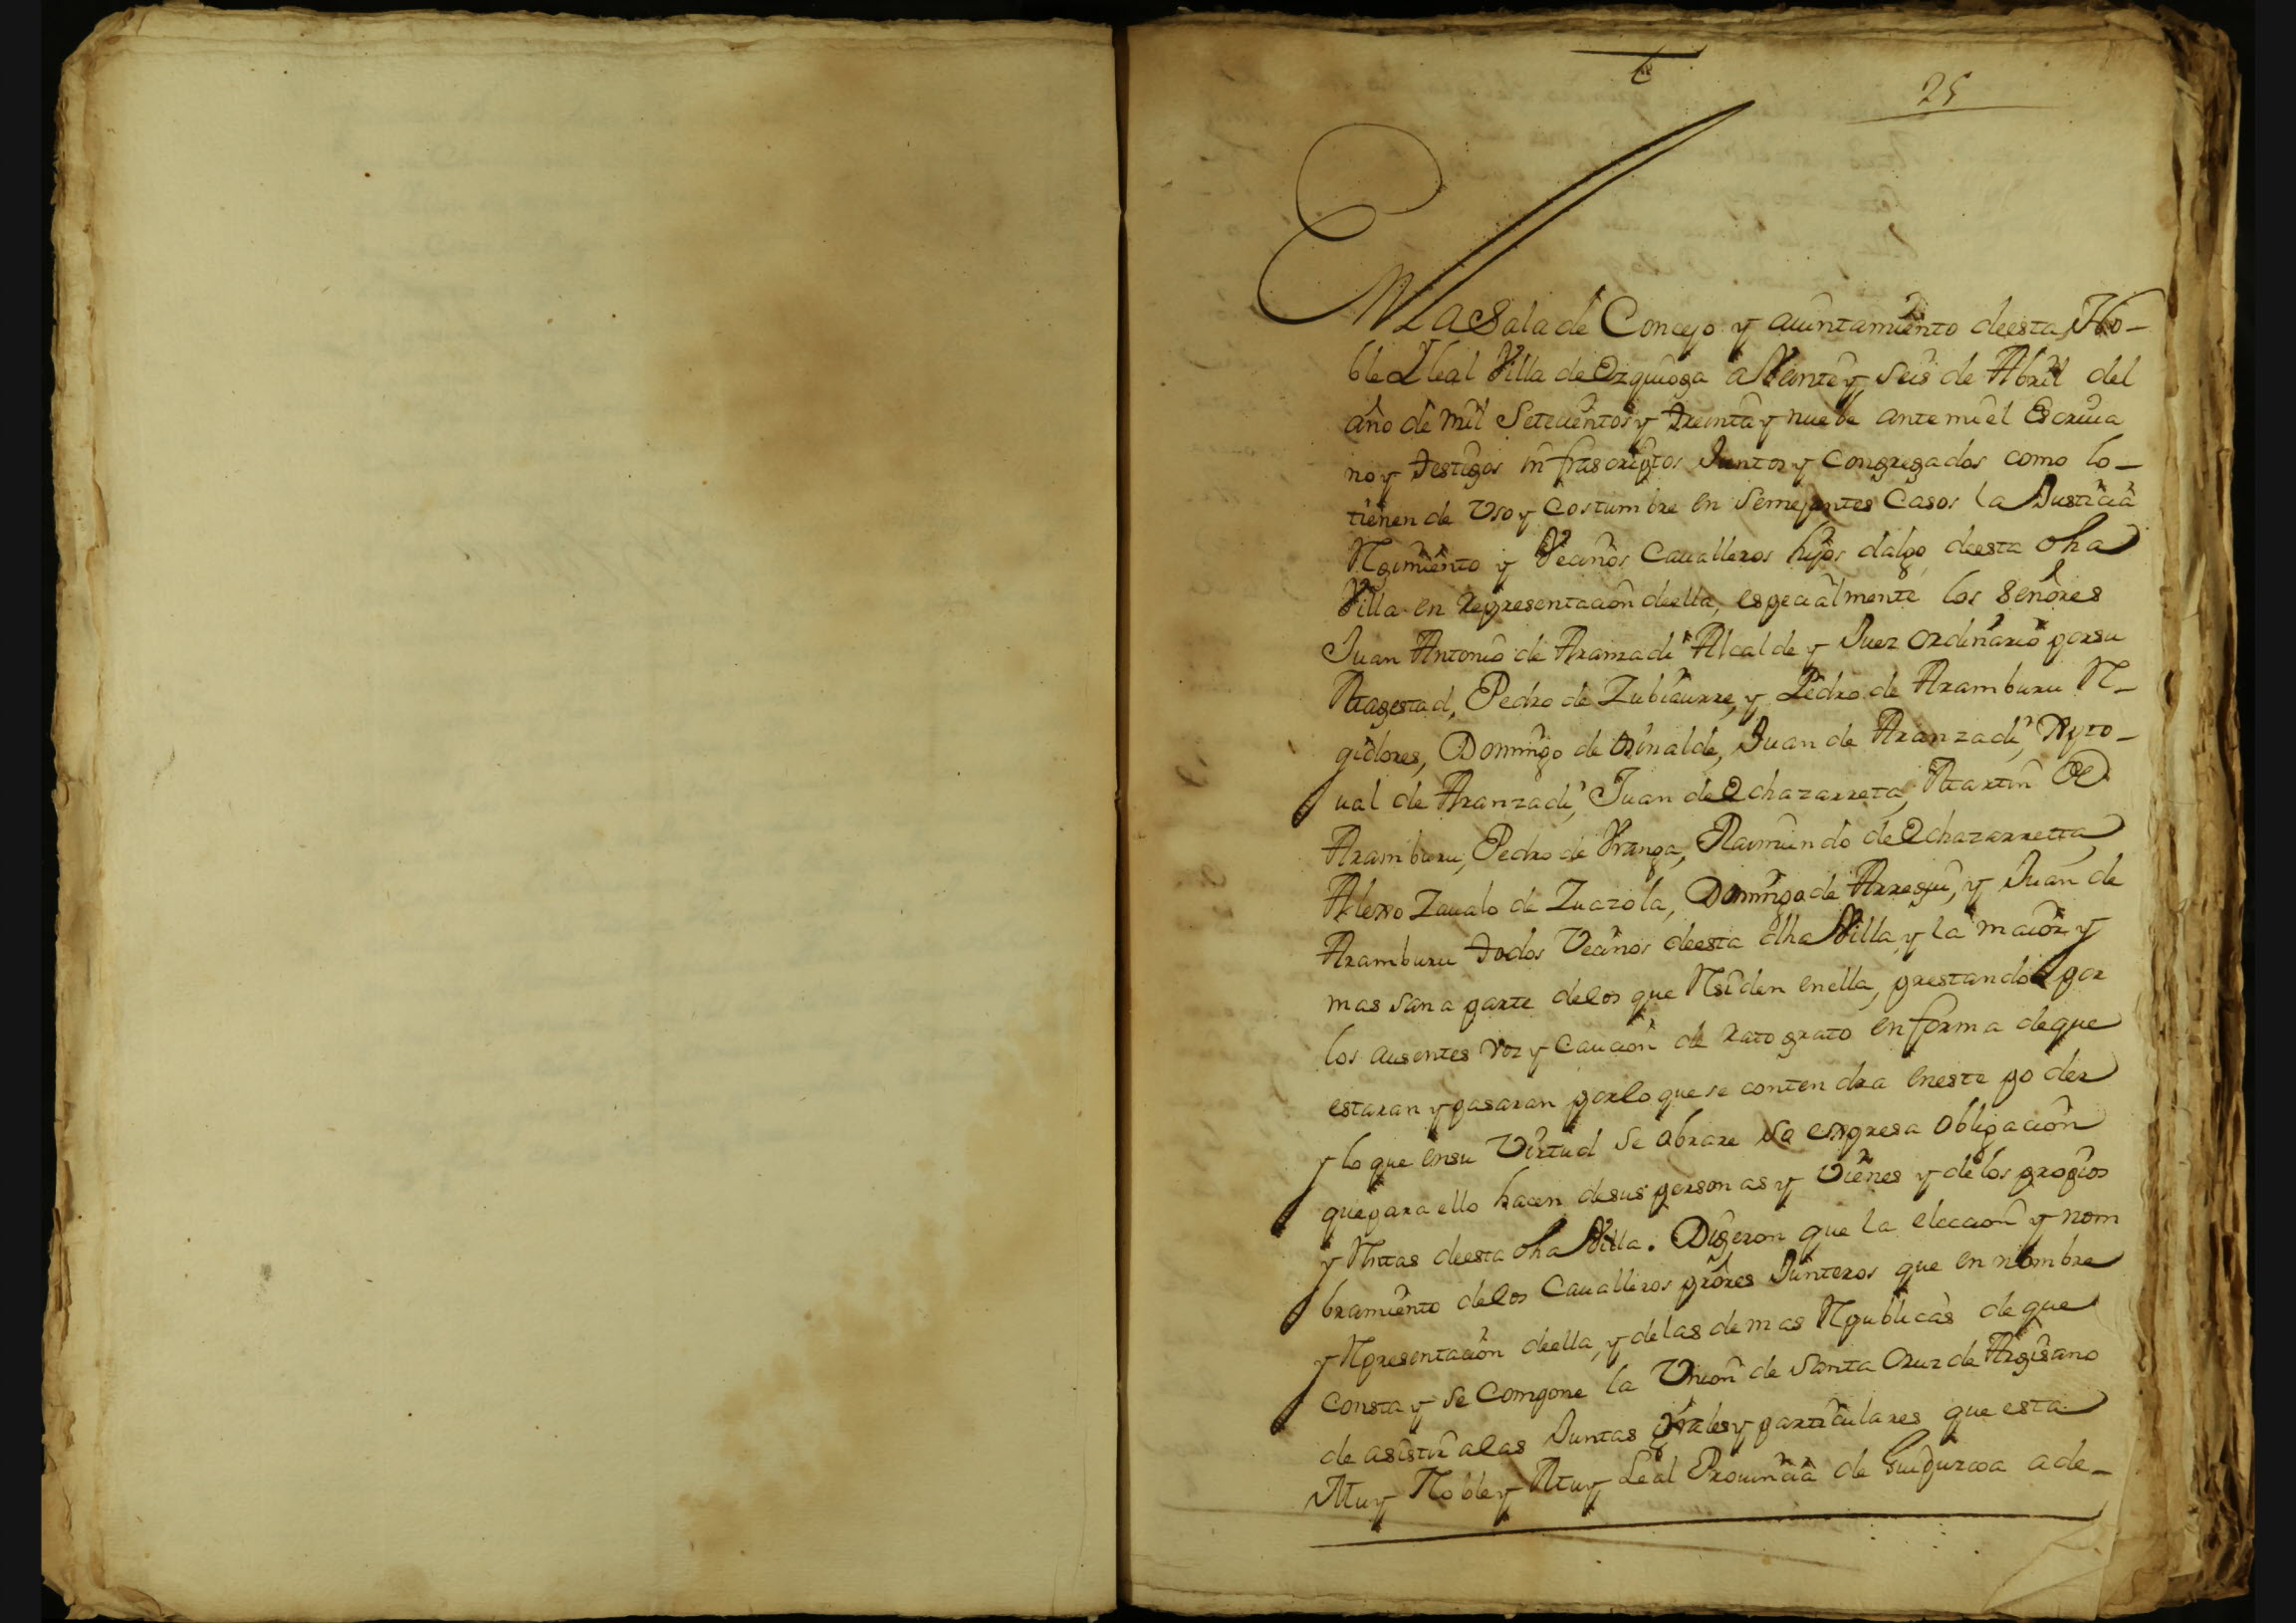 25
En la Sala de Concejo y aiuntamiento deesta No-
ble Lleal Villa de Ezquioga a Veinte y seis de Abril del
año de mil Setecientos y treinta y nuebe ante mi el Escriua
no y testigos infrascriptos Juntos y Congregados como lo-
tienen de Vso y Costumbre en Semejantes Casos la Justicia
Rgimiento y Vecinos Caualleros hijos dalgo deesta dha
Villa en representacion deella, especialmente los Señores
Juan Antonio de Aranzadi Alcalde y Juez ordinario por su
Magestad, Pedro de Zubiaurre, y Pedro de Aramburu R-
gidores, Domingo de Alinalde, Juan de Aranzadi,
ual de Aranzadi, Juan de Echazarreta, Martin de
Aramburu, Pedro de Vranga, Raimundo de Echazarretta,
Alexo Zaualo de Zuazola, Domingo de Arregui, y Juan de
Aramburu todos Vecinos deesta dha Villa y la maior y
mas sana parte delos que Rsiden enella, prestando por
los ausentes voz y Caucion de rato grato en forma deque
estaran y pasaran porlo que se contendra eneste poder
y lo que ensu Virtud se obrare so expresa obligacion
que para ello hacen desus personas y Vienes y delos propios
y Rntas deesta dha Villa. Dijeron que la eleccion y nom
bramiento delos Caualleros prores Junteros que en nombre
y Rpresentacion deella, y delas demas Rpublicas de que
Consta y se Compone la Vnion de Santa Cruz de Argisano
de asistir alas Juntas grales y particulares que esta
Muy Noble y Muy Leal Prouincia de Guipuzcoa a de-